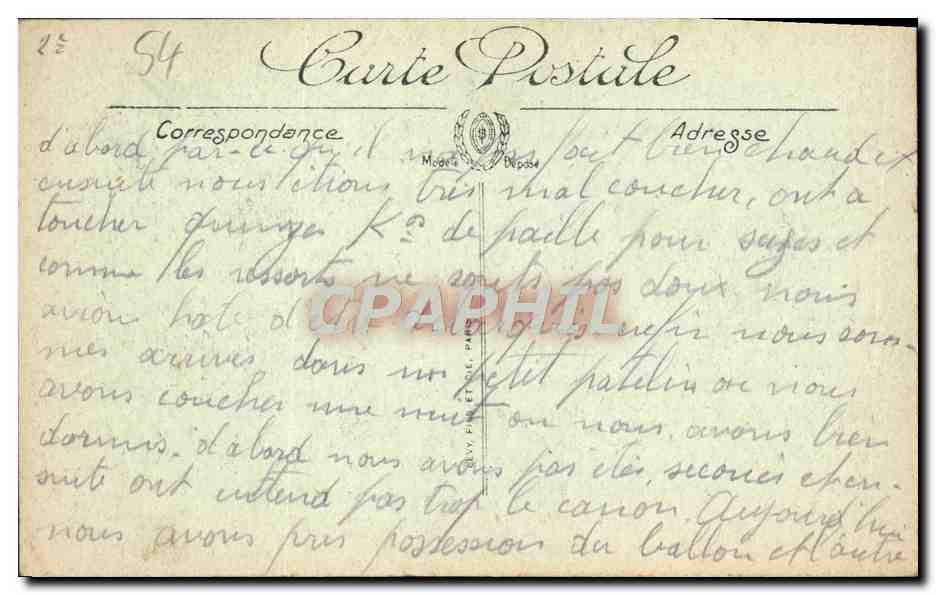 2e 54
Carte Postale
Correspondance Adresse
Modèle Déposé
d'abord par-ce qu'il fait bien chaud et
ensuite nous étions très mal coucher, ont a
toucher quinze Kos de paille pour seizes et
comme les ressorts ne sonts pas doux nous
avions hate d'être enfin nous som-
mes arrives dans un petit patelin ou nous
avons coucher une nuit ou nous avons bien
dormis. d'abord nous avons pas étés secoués et en-
suite ont entend pas trop le canon. Aujourd'hui
nous avons pris possession du ballon et l'autre
LEVY, FILS ET CIE, PARIS
CPAPHIL